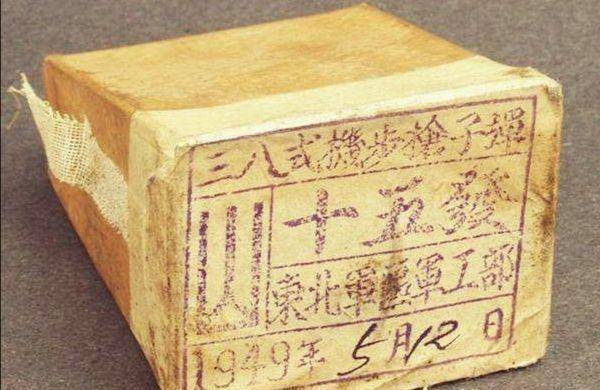 三八式機步槍子彈
十五發
東北軍區軍工部
1949年 5月12日